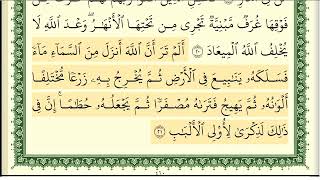 فَوْقِهَا غُرَفٌ مَّبْنِيَّةٌ تَجْرِى مِن تَحْتِهَا ٱلْأَنْهَٰرُ ۖ وَعْدَ ٱللَّهِ لَا
يُخْلِفُ ٱللَّهُ ٱلْمِيعَادَ ٢٠ أَلَمْ تَرَ أَنَّ ٱللَّهَ أَنزَلَ مِنَ ٱلسَّمَآءِ مَآءً
فَسَلَكَهُۥ يَنَٰبِيعَ فِى ٱلْأَرْضِ ثُمَّ يُخْرِجُ بِهِۦ زَرْعًا مُّخْتَلِفًا
أَلْوَٰنُهُۥ ثُمَّ يَهِيجُ فَتَرَىٰهُ مُصْفَرًّا ثُمَّ يَجْعَلُهُۥ حُطَٰمًا ۚ إِنَّ فِى
ذَٰلِكَ لَذِكْرَىٰ لِأُو۟لِى ٱلْأَلْبَٰبِ ٢١
٤٦٠